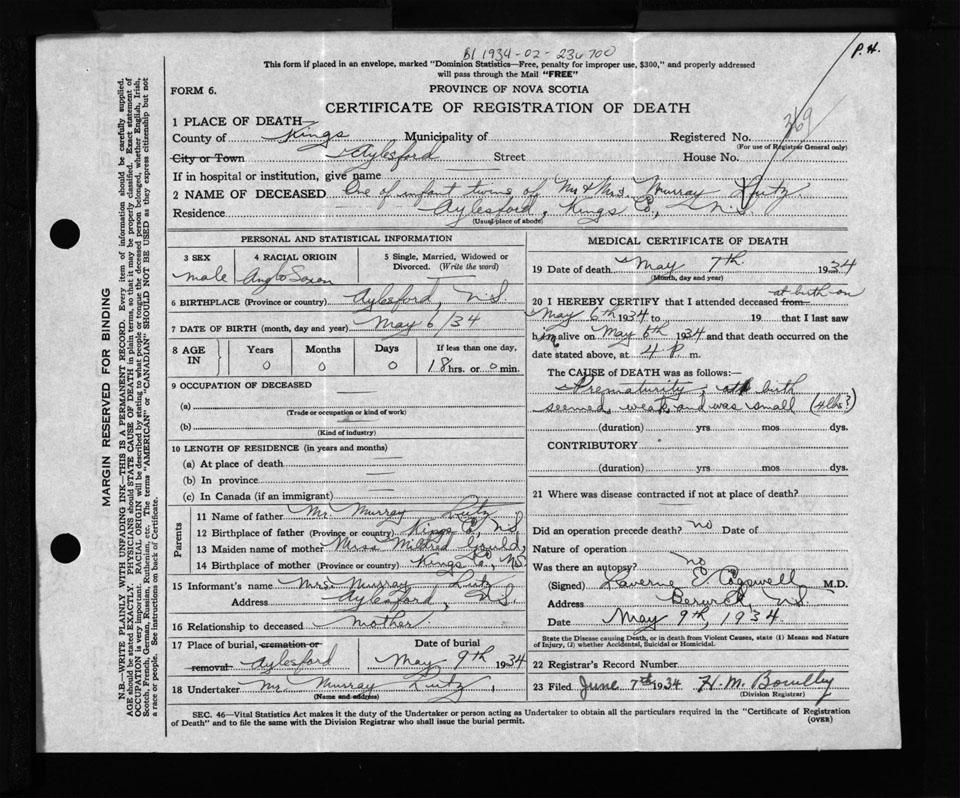 B1 1934-02-236700
P. H.
This form if placed in an envelope, marked "Dominion Statistics—Free, penalty for improper use, $300," and properly addressed
will pass through the Mail "FREE"
FORM 6.
PROVINCE OF NOVA SCOTIA
CERTIFICATE OF REGISTRATION OF DEATH
1 PLACE OF DEATH
County of Kings Municipality of Registered No. 269
(For use of Registrar General only)
City or Town Aylesford Street House No.
If in hospital or institution, give name
2 NAME OF DECEASED One of infant twins of Mr & Mrs. Murray Lutz
Residence Aylesford, Kings Co., N.S.
(Usual place of abode)
PERSONAL AND STATISTICAL INFORMATION
3 SEX
male
4 RACIAL ORIGIN
Anglo Saxon
5 Single, Married, Widowed or
Divorced. (Write the word)
6 BIRTHPLACE (Province or country) Aylesford, N.S.
7 DATE OF BIRTH (month, day and year) May 6/34
8 AGE IN
Years Months Days If less than one day,
0 0 0 18 hrs. or 0 min.
9 OCCUPATION OF DECEASED
(a)
(Trade or occupation or kind of work)
(b)
(Kind of industry)
10 LENGTH OF RESIDENCE (in years and months)
(a) At place of death
(b) In province
(c) In Canada (if an immigrant)
Parents
11 Name of father Mr. Murray Lutz
12 Birthplace of father (Province or country) Kings Co., N.S.
13 Maiden name of mother Miss Mildred Gould,
14 Birthplace of mother (Province or country) Kings Co., N.S.
15 Informant's name Mrs. Murray Lutz
Address Aylesford, N.S.
16 Relationship to deceased mother
17 Place of burial, cremation or
removal Aylesford
Date of burial
May 9th 1934
18 Undertaker Mr. Murray Lutz,
(Name and address)
MEDICAL CERTIFICATE OF DEATH
19 Date of death May 7th. 1934
(Month, day and year)
at birth on
20 I HEREBY CERTIFY that I attended deceased from
May 6th 1934 to 19 that I last saw
him alive on May 6th 1934 and that death occurred on the
date stated above, at 4 P. m.
The CAUSE of DEATH was as follows:—
Prematurity; at birth
seemed weak and was small (4 lbs?)
(duration) yrs mos dys.
CONTRIBUTORY
(duration) yrs mos dys.
21 Where was disease contracted if not at place of death?
Did an operation precede death? no Date of
Nature of operation
Was there an autopsy? no
(Signed) Laverne E. Cogswell M.D.
Address Berwick, N.S.
Date May 9th, 1934.
State the Disease causing Death, or in death from Violent Causes, state (1) Means and Nature
of Injury, (2) whether Accidental, Suicidal or Homicidal.
22 Registrar's Record Number
23 Filed June 7th 1934 H. M.
(Division Registrar)
SEC. 46—Vital Statistics Act makes it the duty of the Undertaker or person acting as Undertaker to obtain all the particulars required in the "Certificate of Registration
of Death" and to file the same with the Division Registrar who shall issue the burial permit.
(OVER)
MARGIN RESERVED FOR BINDING
N.B.—WRITE PLAINLY WITH UNFADING INK—THIS IS A PERMANENT RECORD. Every item of information should be carefully supplied.
AGE should be stated EXACTLY. PHYSICIANS should STATE CAUSE OF DEATH in plain terms, so that it may be properly classified. Exact statement of
OCCUPATION is very important. RACIAL ORIGIN will be described by stating to what people or tongue the deceased person belonged, whether English, Irish,
Scotch, French, German, Russian, Ruthenian, etc. The terms "AMERICAN" or "CANADIAN" SHOULD NOT BE USED as they express citizenship but not
a race or people. See instructions on back of Certificate.